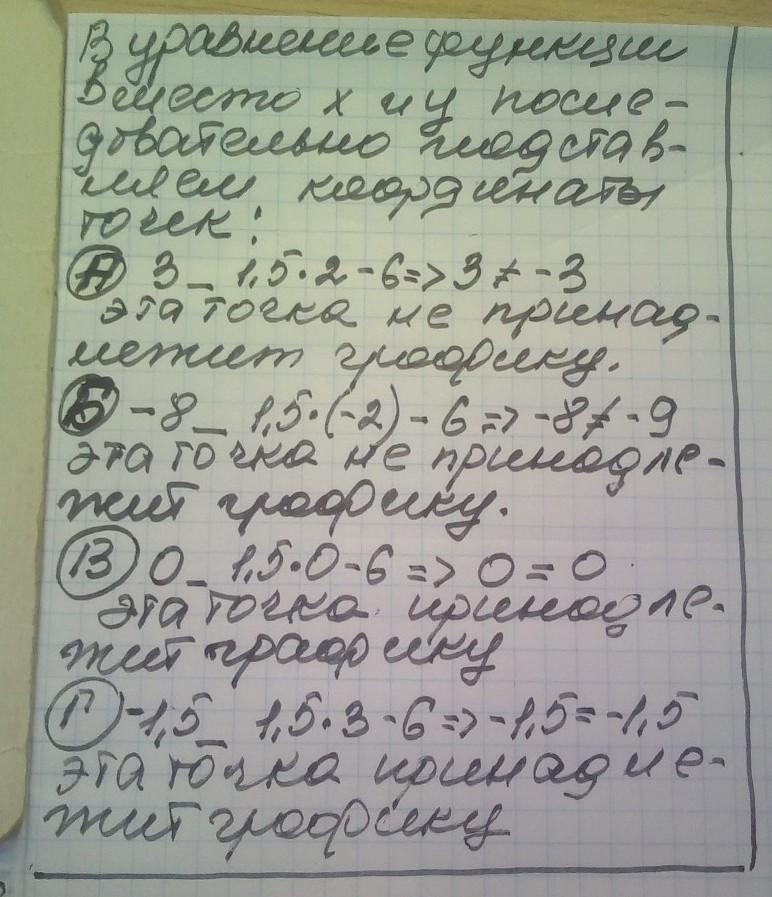 В уравнение функции
вместо х и у после-
довательно подстав-
ляем координаты
точек:
А 3_ 1,5·2-6=>3≠-3
эта точка не принад-
лежит графику.
Б -8_ 1,5·(-2)-6=>-8≠-9
эта точка не принадле-
жит графику.
В 0_ 1,5·0-6=>0=0
эта точка принадле-
жит графику
Г -1,5_ 1,5·3-6=>-1,5=-1,5
эта точка принадле-
жит графику